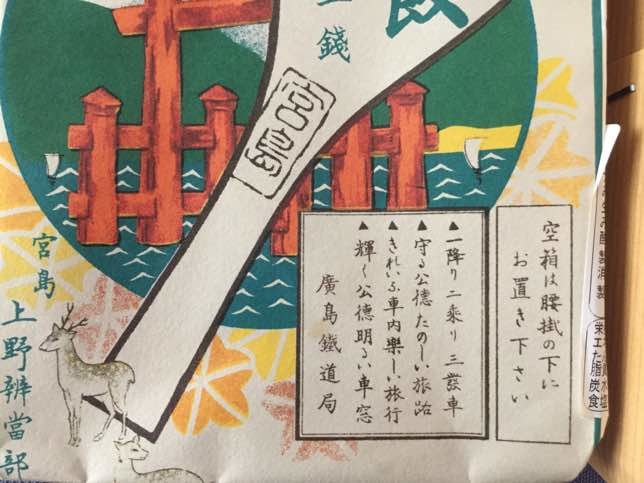 錢
宮島
空箱は腰掛の下に
お置き下さい
▲一降り二乗り三發車
▲守る公徳たのしい旅路
▲きれいな車内樂しい旅行
▲輝く公徳明るい車窓
廣島鐵道局
宮島
上野辨當部